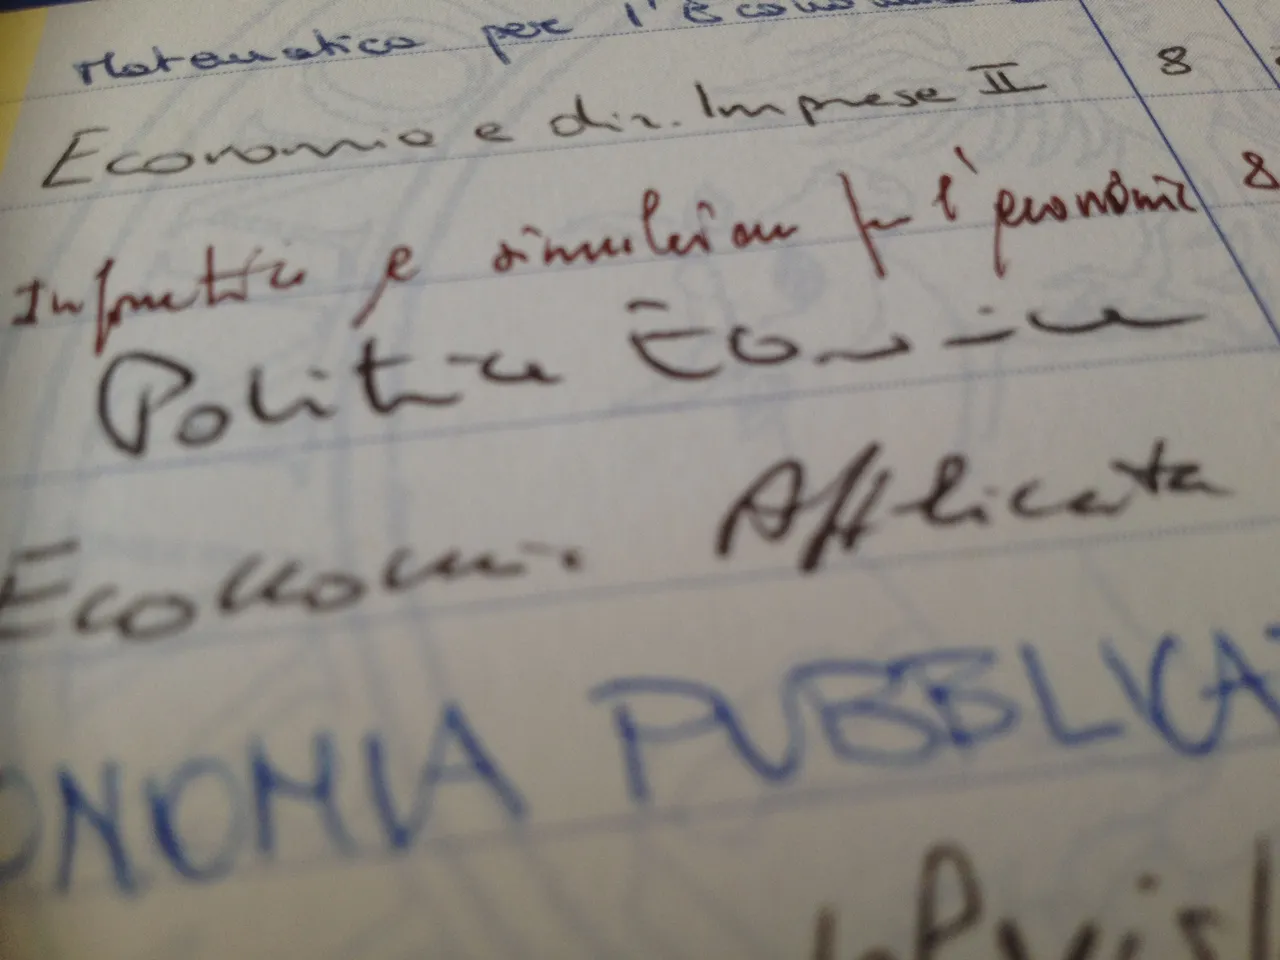 Matematica per l'Economia
Economia e dir. Imprese II 8
Informatica e simulazione per l'economia 8
Politica Economica
Economia Applicata
ONOMIA PUBBLICA